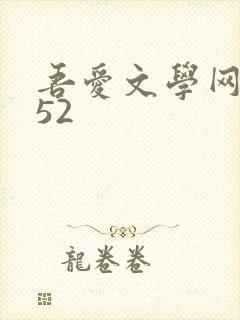 吾愛文學网
52
龍卷卷